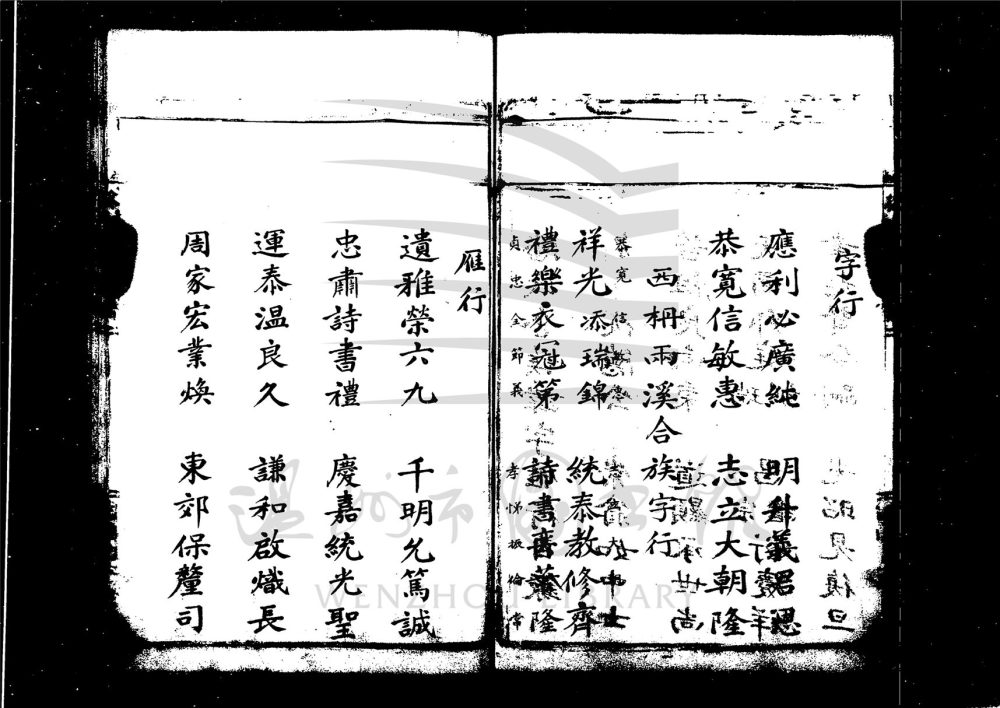 字行
應利必廣純 明
恭寬信敏惠 志立大朝隆
西枬兩溪合族字行
祥光添瑞錦 統泰教修齊
禮樂衣冠第 詩書
貞忠全節義 孝悌振倫常
雁行
遺雅榮六九 千明允篤誠
忠肅詩書禮 慶嘉統光聖
運泰温良久 謙和啟熾長
周家宏業煥 東郊保釐司
WENZHOU LIBRARY